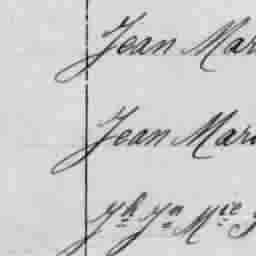 Jean Mar
Jean Mar
Jh Jn Mie